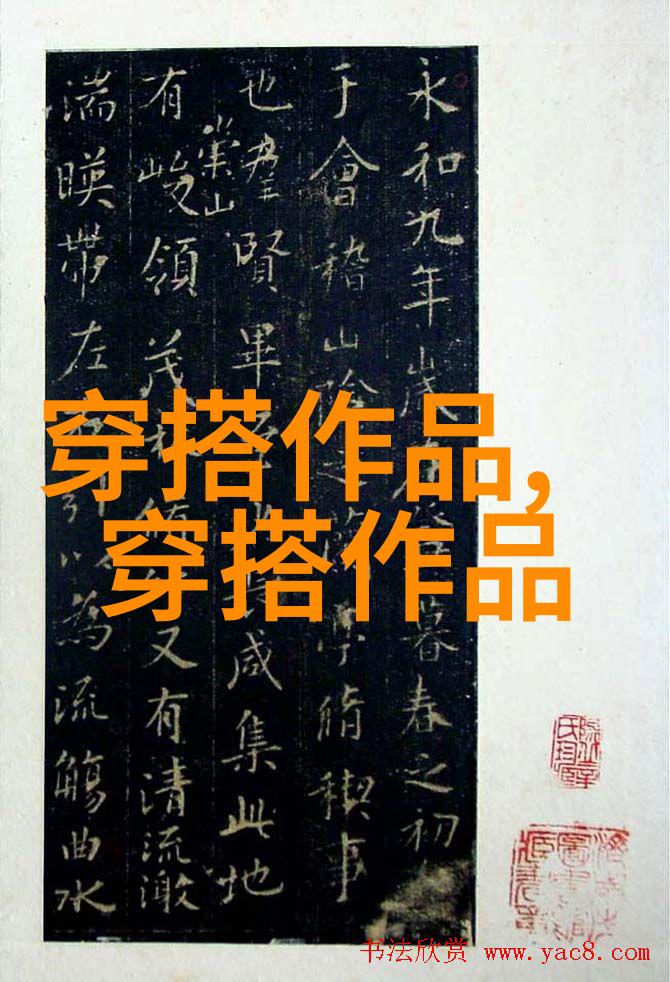 永和九年歲暮春之初
于會稽山陰之亭脩稧事
也羣賢畢咸集此地
有崇山峻領茂又有清流激
湍暎帶左引以為流觴曲水
穿搭作品,
穿搭作品
书法欣赏 www.yac8.com